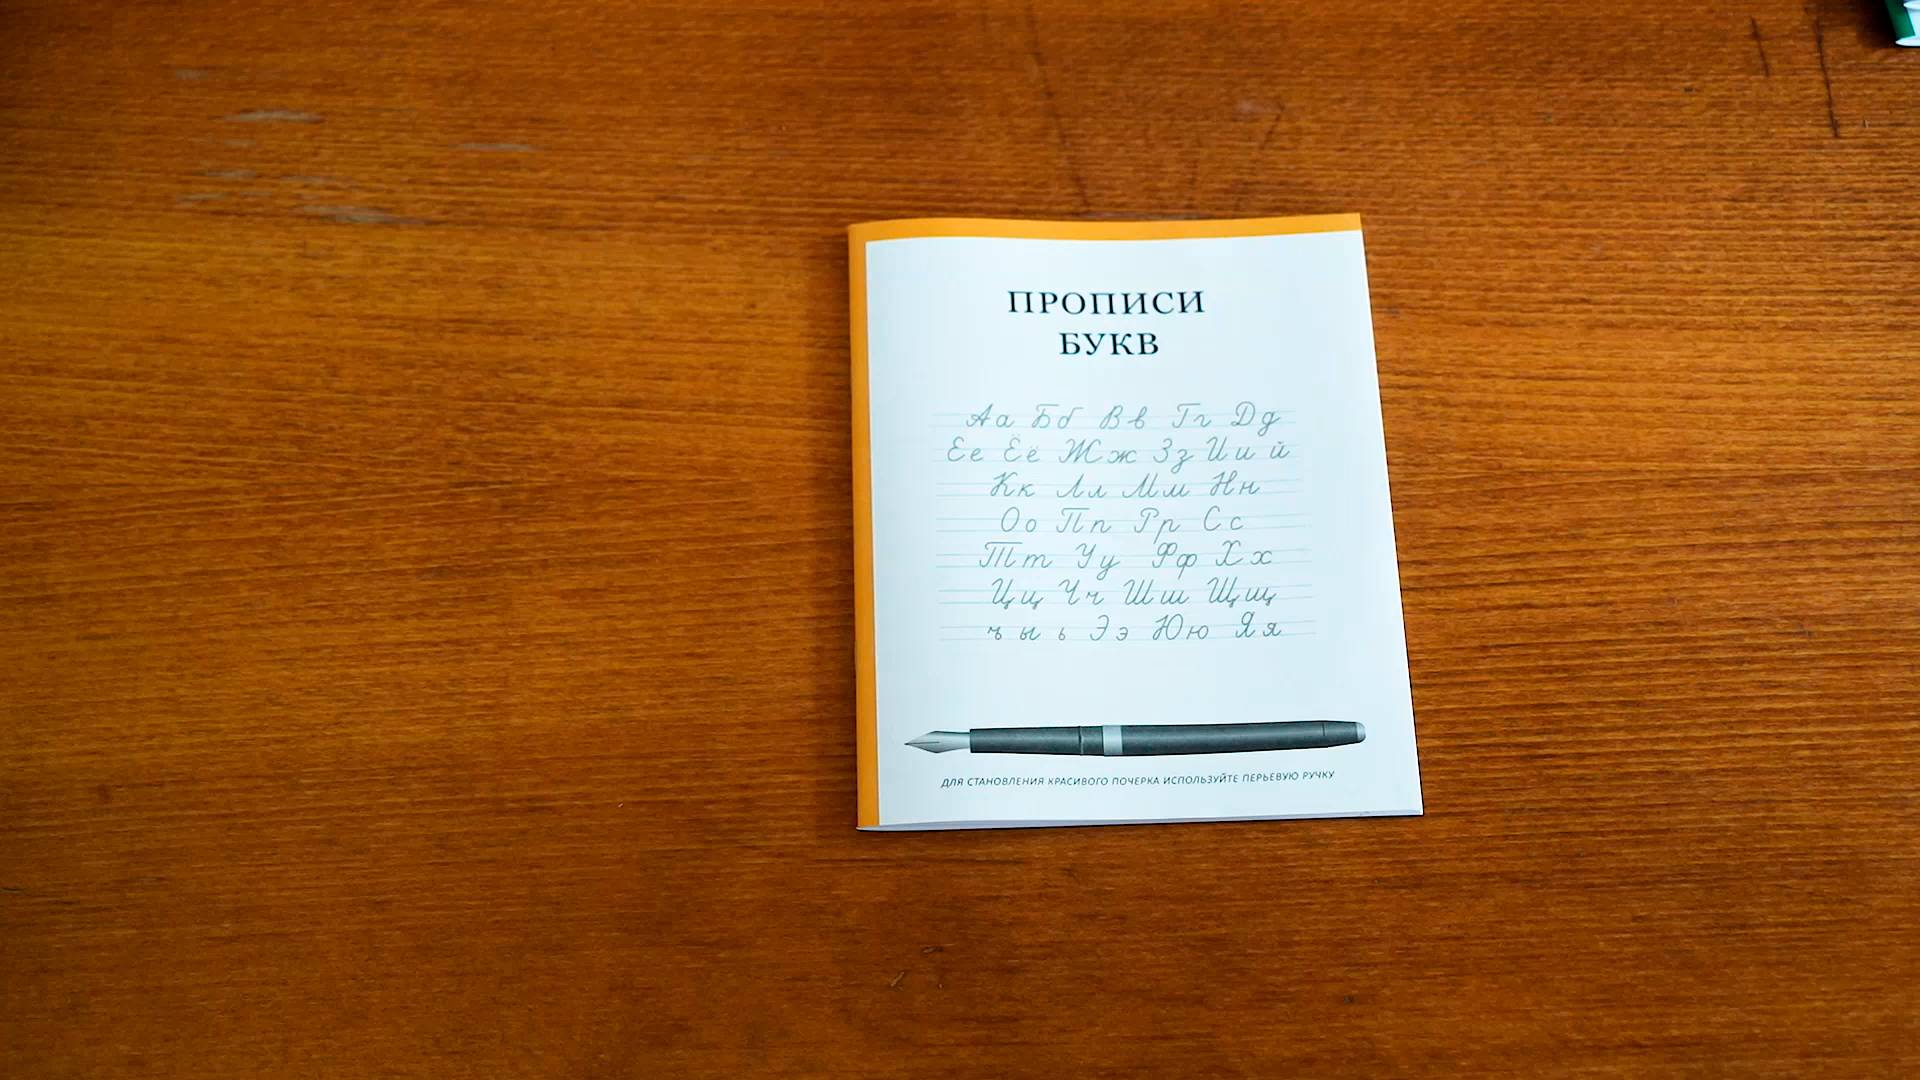 ПРОПИСИ
БУКВ
Аа Бб Вв Гг Дд
Ее Ёё Жж Зз Ии й
Кк Лл Мм Нн
Оо Пп Рр Сс
Тт Уу Фф Хх
Цц Чч Шш Щщ
ъ ы ь Ээ Юю Яя
ДЛЯ СТАНОВЛЕНИЯ КРАСИВОГО ПОЧЕРКА ИСПОЛЬЗУЙТЕ ПЕРЬЕВУЮ РУЧКУ